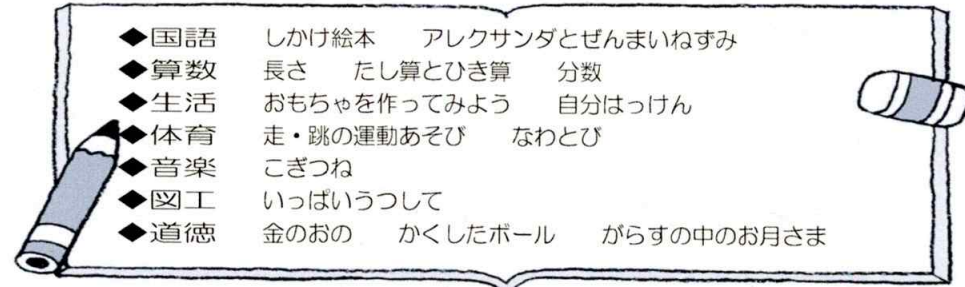 ◆国語　しかけ絵本　アレクサンダとぜんまいねずみ
◆算数　長さ　たし算とひき算　分数
◆生活　おもちゃを作ってみよう　自分はっけん
◆体育　走・跳の運動あそび　なわとび
◆音楽　こぎつね
◆図工　いっぱいうつして
◆道徳　金のおの　かくしたボール　がらすの中のお月さま